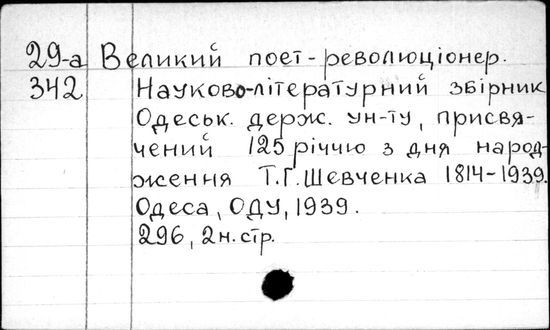 29-а Великий поет-революціонер.
342 Науково-літературний збірник
Одеськ. держ. ун-ту, присвя-
чений 125 річчю з дня народ-
ження Т.Г. Шевченка 1814-1939.
Одеса, ОДУ, 1939.
296, 2 н. стр.